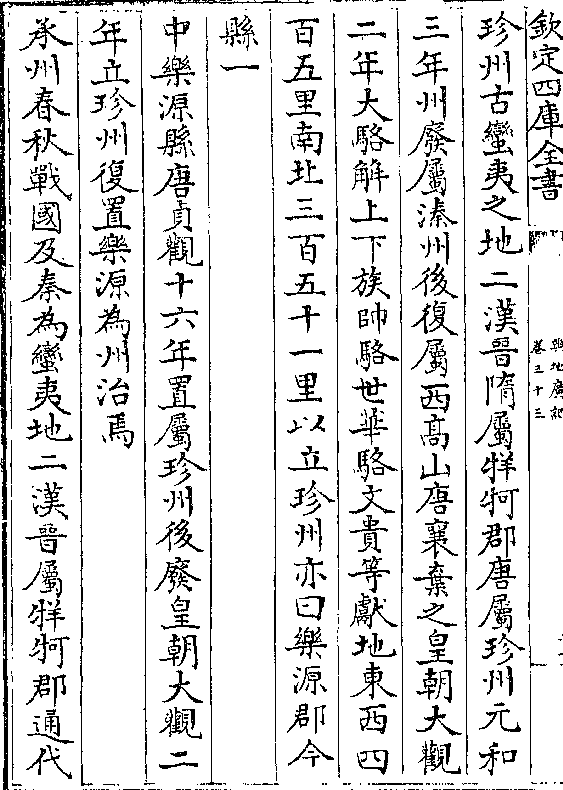 欽定四庫全書
輿地廣記
卷三十三
珍州古蠻夷之地二漢晉隋屬牂牁郡唐屬珍州元和
三年州廢屬溱州後復屬西高山唐襄棄之皇朝大觀
二年大駱解上下族帥駱世華駱文貴等獻地東西四
百五里南北三百五十一里以立珍州亦曰樂源郡今
縣一
中樂源縣唐貞觀十六年置屬珍州後廢皇朝大觀二
年立珍州復置樂源為州治焉
承州春秋戰國及秦為蠻夷地二漢晉屬牂牁郡通代